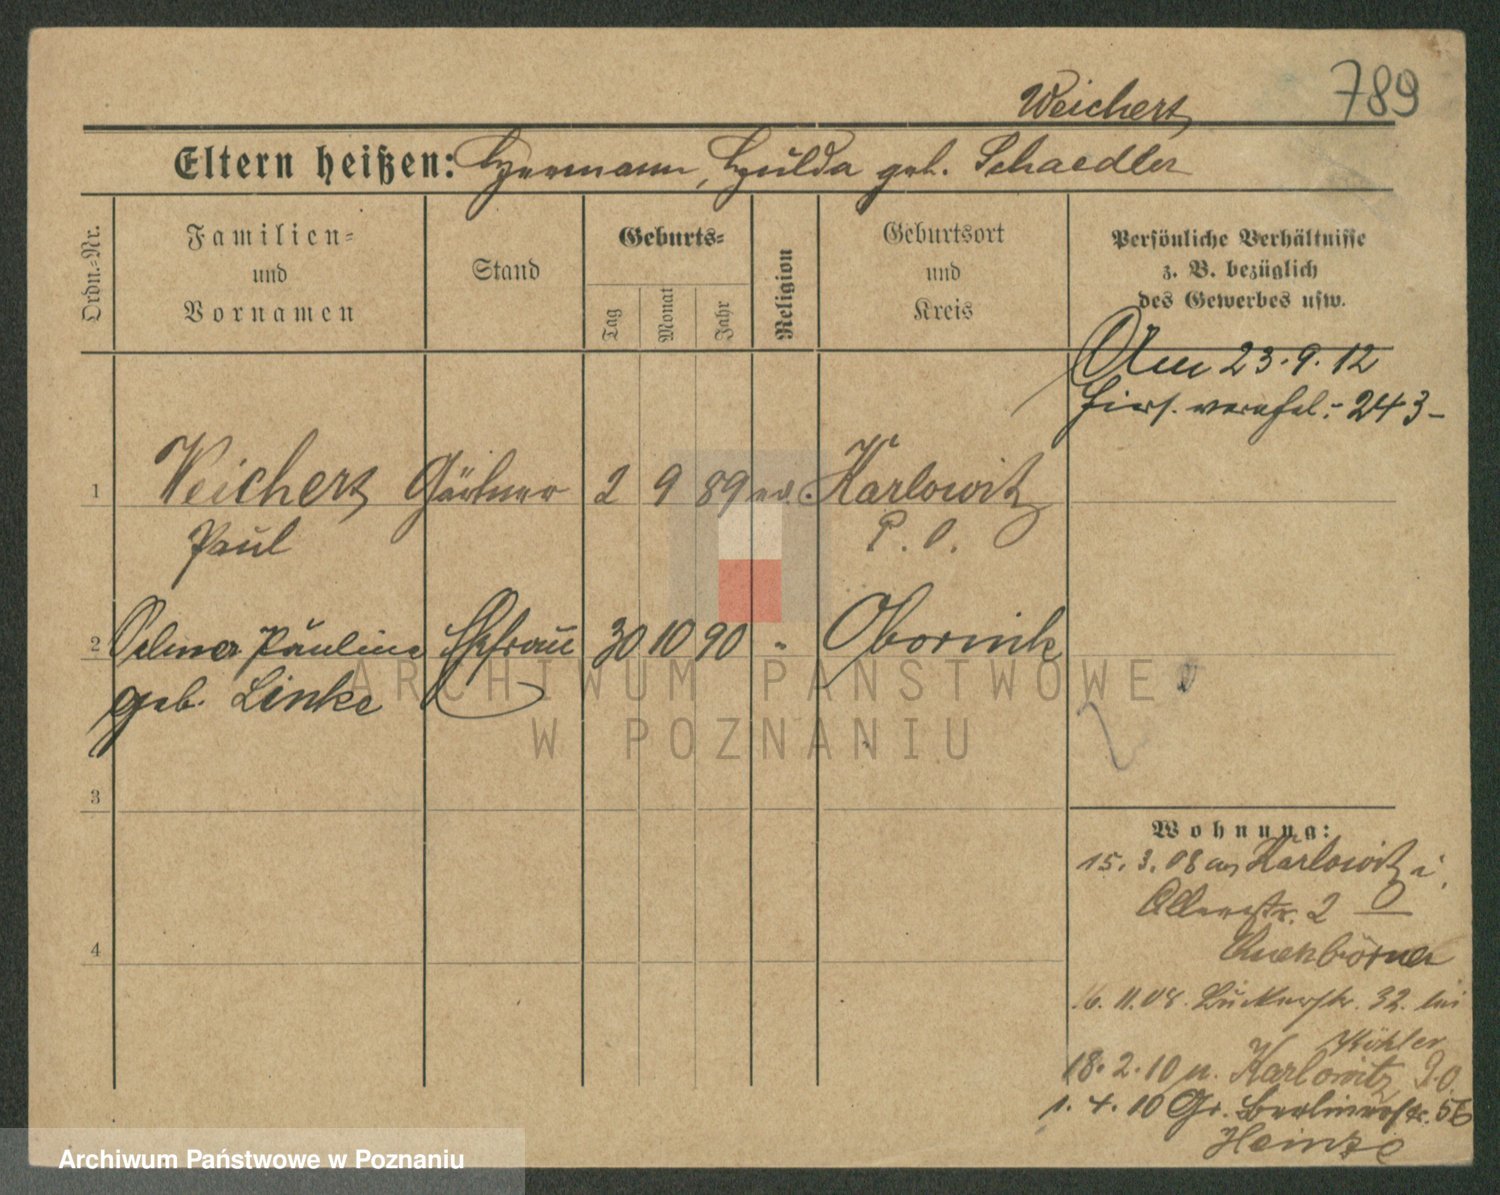 789
Weichert
Eltern heißen: Hermann, Hulda geb. Schaedler
Ordn.-Nr.
Familien-
und
Vornamen
Stand
Geburts-
Tag
Monat
Jahr
Religion
Geburtsort
und
Kreis
Persönliche Verhältnisse
z. B. bezüglich
des Gewerbes usw.
Am 23.9.12
243-
1 Weichert Gärtner 2 9 89 ev. Karlowitz
Paul P. O.
2 Pauline Ehefrau 30 10 90 " Obornik
geb. Linke
3
4
Wohnung:
15.3.08 aus Karlowitz i.
2 —
6.11.08. 32. bei
Köhler
18.2.10 n. Karlowitz P.O.
1.4.10 Gr. Berlinerstr. 56
Heinze
ARCHIWUM PAŃSTWOWE
W POZNANIU
Archiwum Państwowe w Poznaniu